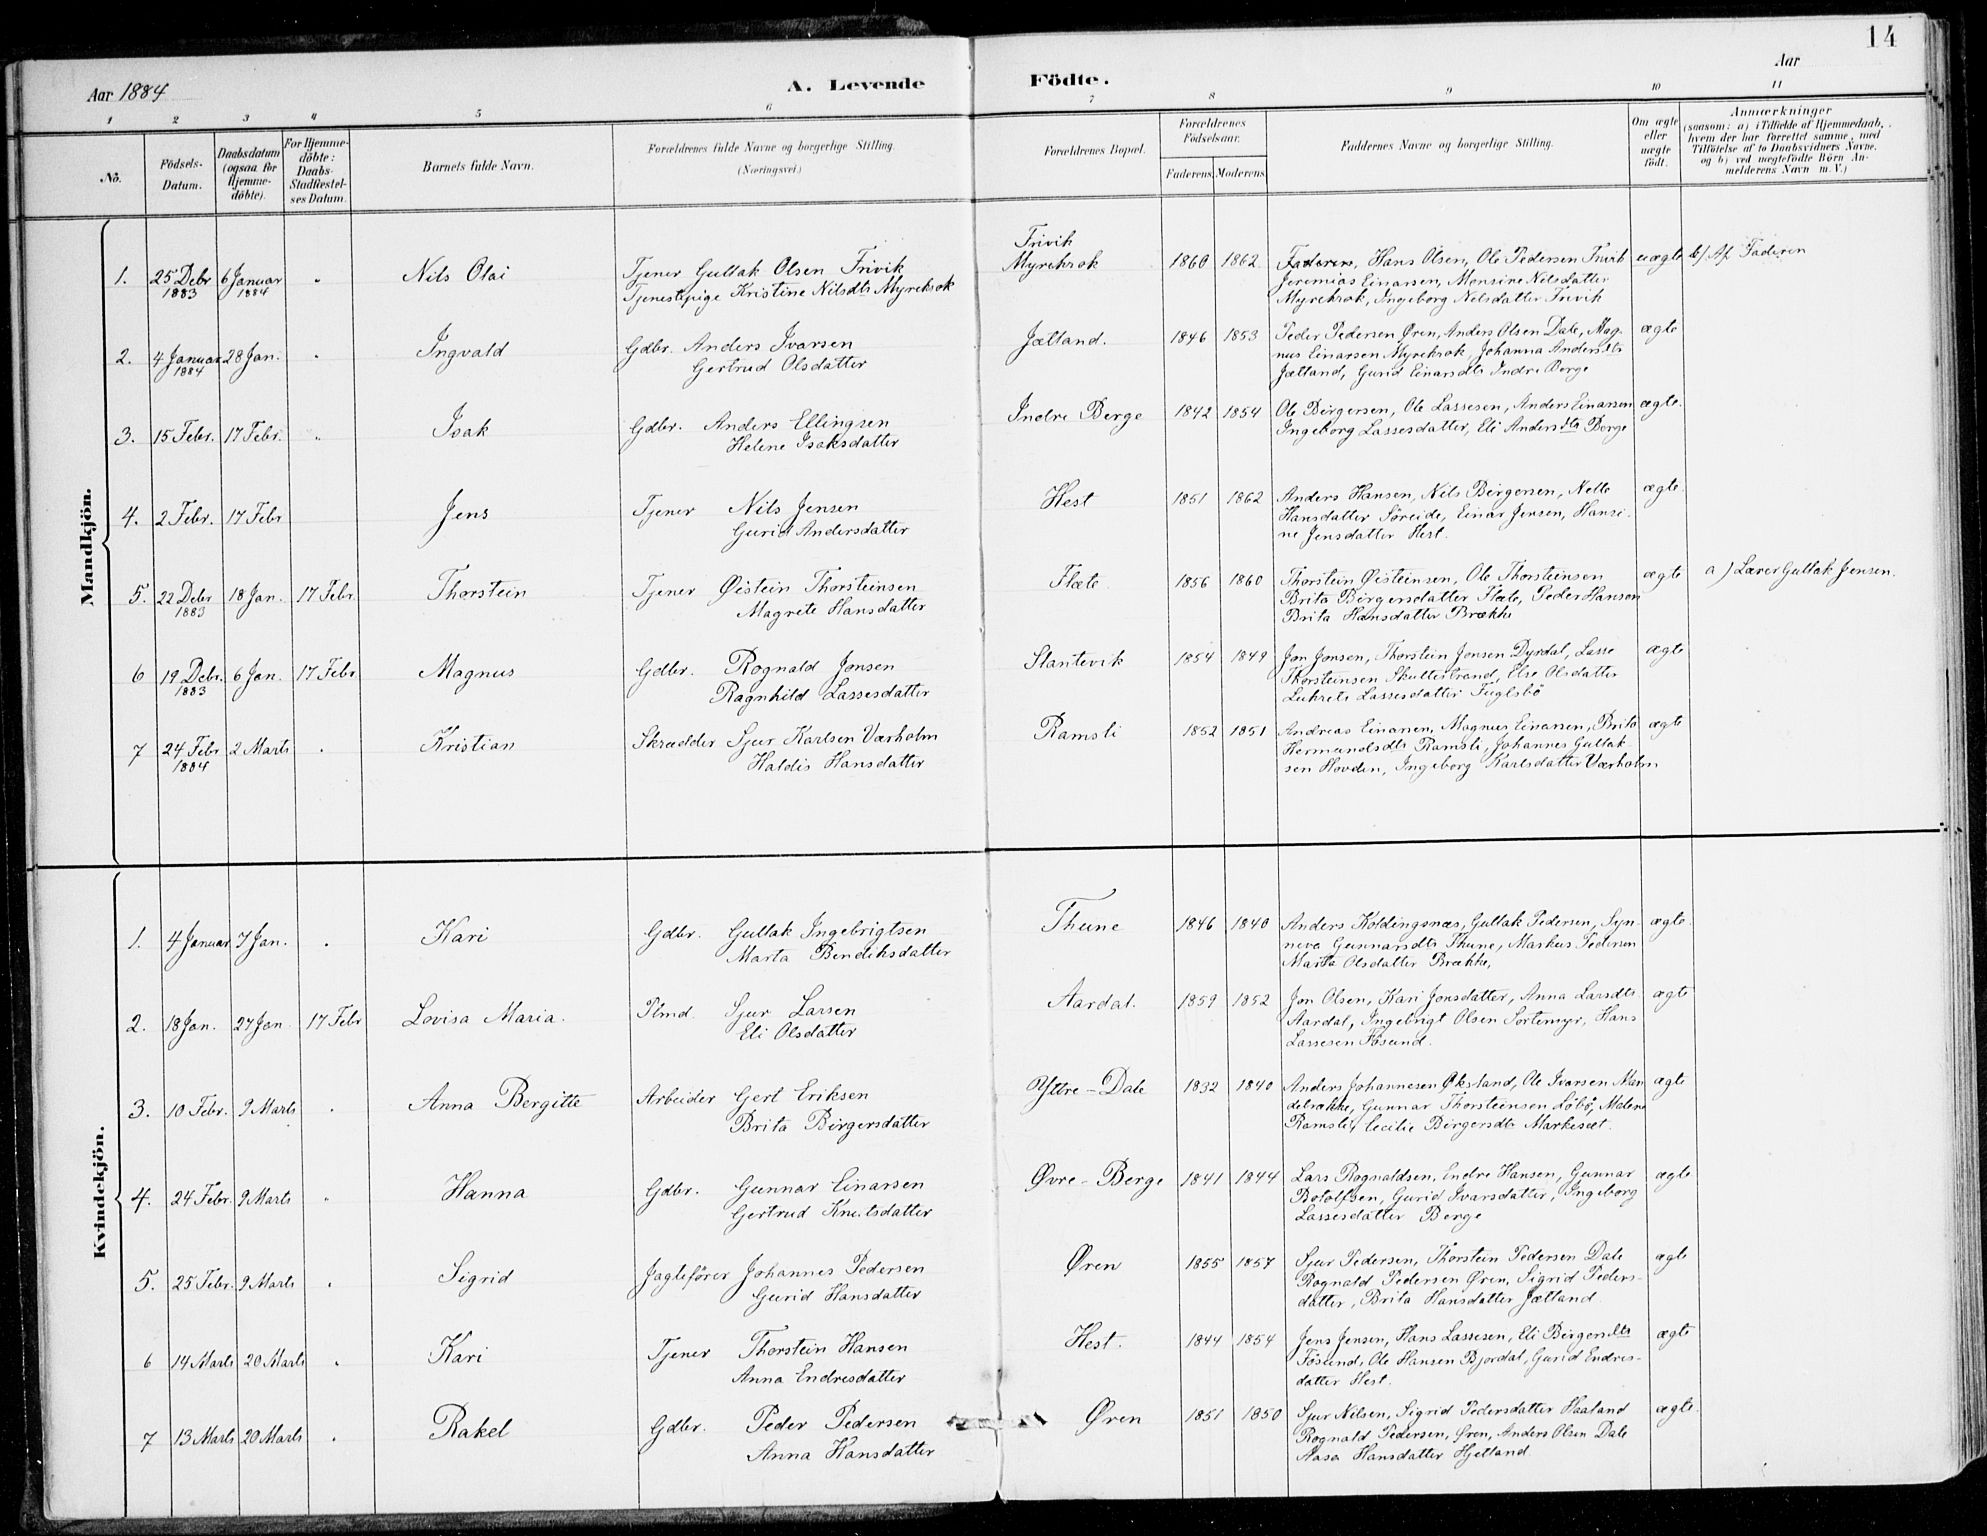 14
Aar 1884
A. Levende Födte.
Aar
1 2 3 4 5 6 7 8 9 10 11
No.
Födsels-Datum.
Daabsdatum (ogsaa for Hjemme-döbte).
For Hjemme-döbte: Daabs-Stadfæstel-ses Datum.
Barnets fulde Navn.
Forældrenes fulde Navne og borgerlige Stilling. (Næringsvei.)
Forældrenes Bopæl.
Forældrenes Födselsaar.
Faderens. Moderens.
Faddernes Navne og borgerlige Stilling.
Om ægte eller uægte födt.
Anmærkninger (saasom: a) i Tilfælde af Hjemmedaab, hvem der har forrettet samme, med Tilföielse af to Daabsvidners Navne, og b) ved uægtefödte Börn An-melderens Navn m. V.)
Mandkjön.
1. 25 Debr 1883 6 Januar 1884 " Nils Olai
Tjener Gullak Olsen Frivik
Tjenestepige Kristine Nilsdtr Myreksok
Frivik
Myrekrok 1860 1862
Faderen, Hans Olsen, Ole Pedersen Frivik
Jeremias Einarsen, Monsine Nilsdatter
Myrekrok, Ingeborg Nilsdatter Frivik
uægte b/ Af Faderen
2. 4 Januar 1884 28 Jan. " Ingvald
Gdbr. Anders Ivarsen
Gertrud Olsdatter
Jætland. 1846 1853
Peder Pedersen Øren, Anders Olsen Dale, Mag-
nus Einarsen Myrekrok, Johanna Andersdtr
Jætland, Gurid Einarsdtr Indre Berge
ægte
3. 15 Febr. 17 Febr. " Isak
Gdbr. Anders Ellingsen
Helene Isaksdatter
Indre Berge 1842 1854
Ole Børgersen, Ole Lassesen, Anders Einarsen
Ingeborg Lassesdatter, Eli Andersdtr Berge
ægte.
4. 2 Febr. 17 Febr Jens
Tjener Nils Jensen
Gurid Andersdatter
Hest 1851 1862
Anders Hansen, Nils Børgersen, Nette
Hansdatter Søreide, Einar Jensen, Hansi-
ne Jensdatter Hest.
ægte.
5. 22 Debr 1883 18 Jan. 17 Febr Thorstein
Tjener Øistein Thorsteinsen
Magrete Hansdatter
Flate 1856 1860
Thorstein Øisteinsen, Ole Thorsteinsen
Brita Børgersdatter Flate, Peder Hansen
Brita Hansdatter Brække
ægte a) Lærer Gullak Jensen.
6 19 Debr. 1883 6 Jan. 17 Febr Magnus
Gdbr. Rognald Jonsen
Ragnhild Lassesdatter
Slantevik 1854 1849
Jon Jonsen, Thorstein Jonsen Dyrdal, Lasse
Thorsteinsen Skuttestrand, Else Olsdatter
Lukrets Lassesdatter Fuglsbö
ægte
7 24 Febr 1884 2 Marts " Kristian
Skrædder Sjur Karlsen Værholm
Haldis Hansdatter
Ramsli 1852 1851
Andreas Einarsen, Magnus Einarsen, Brita
Hermundsdtr Ramsli, Johannes Gullak-
sen Hovden, Ingeborg Karlsdatter Værholm
ægte
Kvindekjön.
1. 4 Januar 7 Jan. " Kari
Gdbr. Gullak Ingebrigtsen
Marta Bendiksdatter
Thune 1846 1840
Anders Koldingsnæs, Gullak Pedersen, Syn-
neva Gunnarsdtr Thune, Markus Pedersen
Marta Olsdatter Brække,
ægte.
2. 18 Jan. 27 Jan. 17 Febr Lovisa Maria.
Plmd. Sjur Larsen
Eli Olsdatter
Aardal. 1859 1852
Jon Olsen, Kari Jonsdatter, Anna Larsdtr
Aardal, Ingebrigt Olsen Sortemyr, Hans
Lassesen Føsund.
ægte
3. 10 Febr. 9 Marts " Anna Bergitte
Arbeider Gert Eriksen
Brita Børgersdatter
Yttre-Dale 1832 1840
Anders Johannesen Øksland, Ole Ivarsen Man
debrække, Gunnar Thorsteinsen Løbø, Malene
Ramsli, Cecilie Børgersdtr Markeset.
ægte
4. 24 Febr. 9 Marts " Hanna
Gdbr. Gunnar Einarsen
Gertrud Knutsdatter
Øvre-Berge 1841 1844
Lars Rognaldsen, Endre Hansen, Gunnar
Botolfsen, Gurid Ivarsdatter, Ingeborg
Lassesdatter Berge
ægte
5. 25 Febr. 9 Marts " Sigrid
Jagtefører Johannes Pedersen
Gurid Hansdatter
Øren 1855 1857
Sjur Pedersen, Thorstein Pedersen Dale
Rognald Pedersen Øren, Sigrid Peders-
datter, Brita Hansdatter Jætland.
ægte
6 14 Marts 20 Marts " Kari
Tjener Thorstein Hansen
Anna Endresdatter
Hest. 1844 1854
Jens Jensen, Hans Lassesen, Eli Børgersdtr
Føsund, Ole Hansen Bjordal, Gurid Endres-
datter Hest.
ægte
7 13 Marts 20 Marts " Rakel
Gdbr. Peder Pedersen
Anna Hansdatter
Øren 1851 1850
Sjur Nilsen, Sigrid Pedersdatter Haaland
Rognald Pedersen, Øren, Anders Olsen Dale
Aasa Hansdatter Hjetland
ægte.